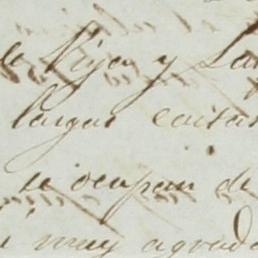 de Rija y La
largas cartas
se ocupan de
muy agrada